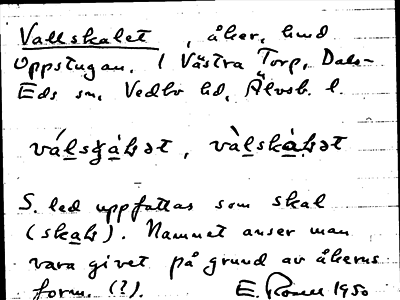 Vallskalet , åker, hmd
Uppstugan. I Västra Torp, Dals-
Eds sn, Vedbo hd, Älvsb. l.
S. led uppfattas som skal
(skaɫs). Namnet anser man
vara givet på grund av åkerns
form. (?). E. 1950